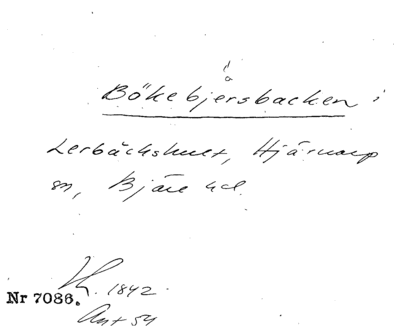 å
Bökebjersbacken i
Lerbäckshult, Hjärnarp
sn, Bjäre hd.
1842.
Nr 7086.
Ant 54